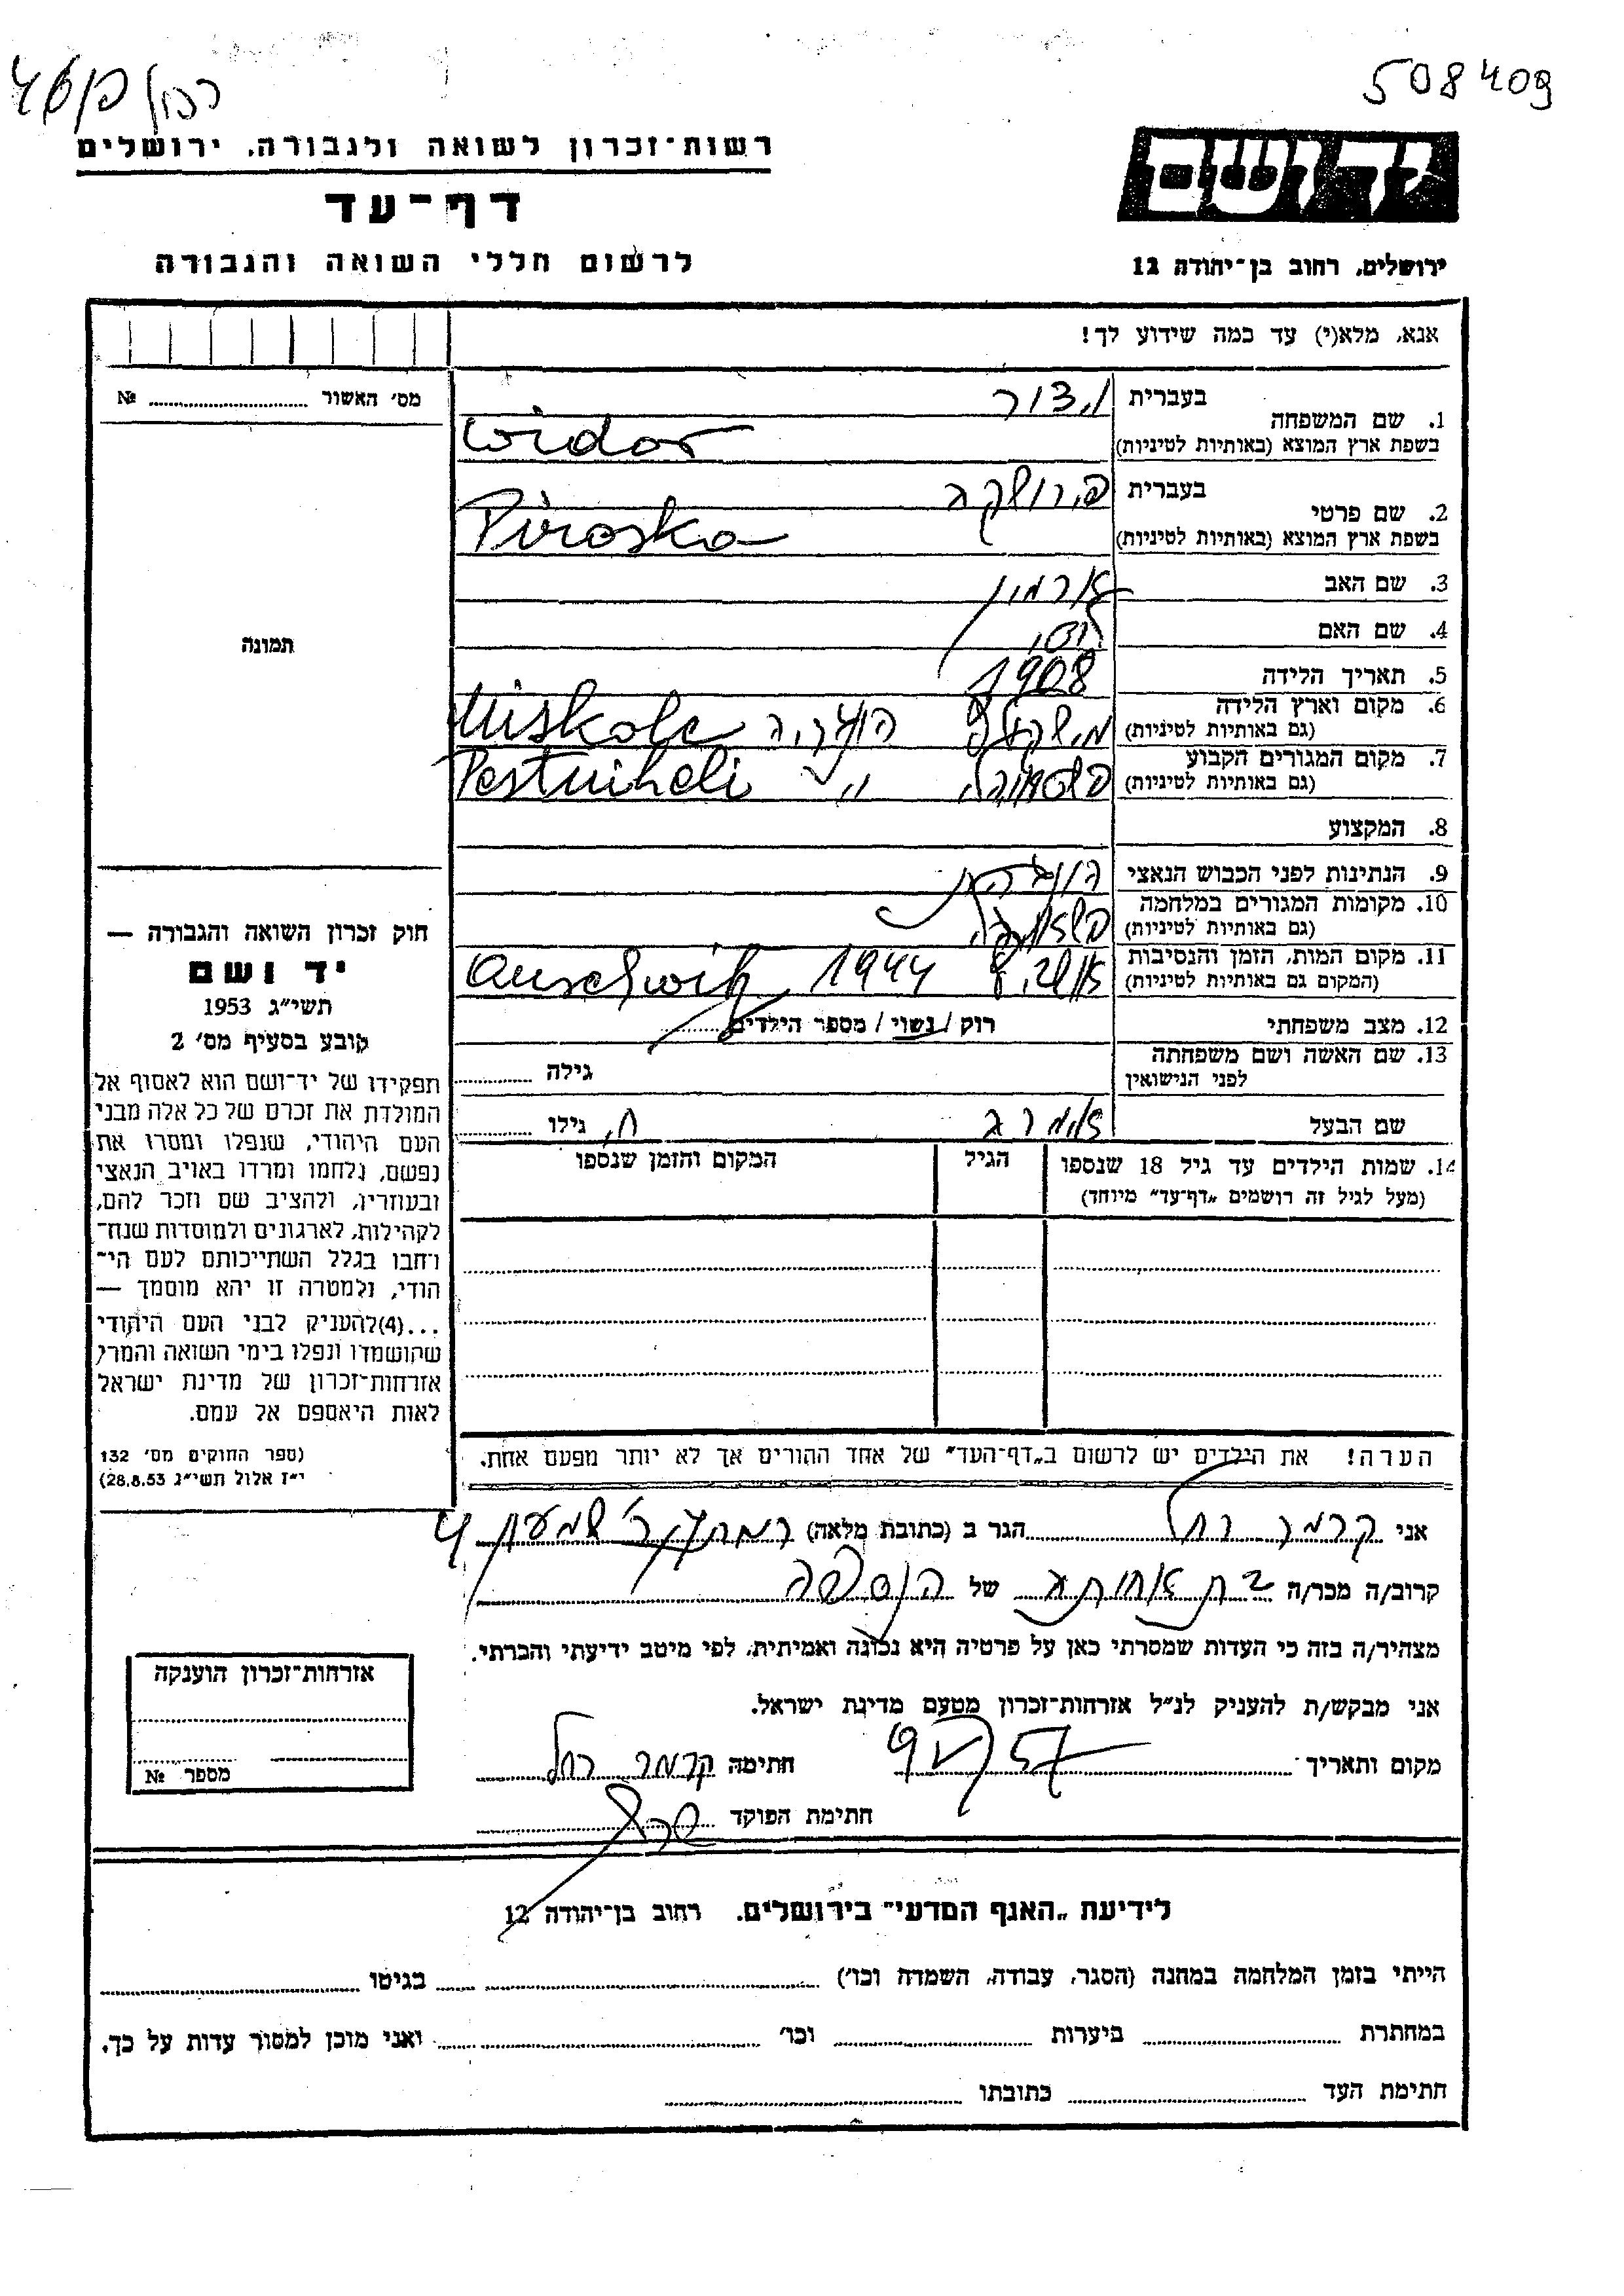 508409
רשות־זכרון לשואה ולגבורה. ירושלים
דף־עד
לרשום חללי השואה והגבורה
יד ושם
ירושלים, רחוב בן־יהודה 12
אנא, מלא(י) עד כמה שידוע לך!
1. שם המשפחה
בעברית
וידור
בשפת ארץ המוצא (באותיות לטיניות)
Widor
2. שם פרטי
בעברית
פירושקה
בשפת ארץ המוצא (באותיות לטיניות)
Piroska
3. שם האב
ארמין
4. שם האם
רוזי
5. תאריך הלידה 1908
6. מקום וארץ הלידה
(גם באותיות לטיניות)
מישקולץ הונגריה Miskolc
7. מקום המגורים הקבוע
(גם באותיות לטיניות)
Pestuiheli
8. המקצוע
9. הנתינות לפני הכבוש הנאצי
הונגרית
10. מקומות המגורים במלחמה
(גם באותיות לטיניות)
11. מקום המות, הזמן והנסיבות
(המקום גם באותיות לטיניות)
אושביץ 1944 Auschwitz
12. מצב משפחתי
רוק / נשוי / מספר הילדים
13. שם האשה ושם משפחתה
לפני הנישואין
גילה
שם הבעל
גילו
14. שמות הילדים עד גיל 18 שנספו
(מעל לגיל זה רושמים „דף־עד” מיוחד)
הגיל
המקום והזמן שנספו
הערה! את הילדים יש לרשום ב„דף־העד” של אחד ההורים אך לא יותר מפעם אחת.
אני קרמר רחל הגר ב (כתובת מלאה) שמעון 4
קרוב/ה מכר/ה בת אחותה של הנספה
מצהיר/ה בזה כי העדות שמסרתי כאן על פרטיה היא נכונה ואמיתית, לפי מיטב ידיעתי והכרתי.
אני מבקש/ת להעניק לנ״ל אזרחות־זכרון מטעם מדינת ישראל.
מקום ותאריך
חתימה קרמר רחל
חתימת הפוקד
מס׳ האשור №
תמונה
חוק זכרון השואה והגבורה —
יד ושם
תשי״ג 1953
קובע בסעיף מס׳ 2
תפקידו של יד־ושם הוא לאסוף אל
המולדת את זכרם של כל אלה מבני
העם היהודי, שנפלו ומסרו את
נפשם, נלחמו ומרדו באויב הנאצי
ובעוזריו, ולהציב שם וזכר להם,
לקהילות, לארגונים ולמוסדות שנח־
רחבו בגלל השתייכותם לעם הי־
הודי, ולמטרה זו יהא מוסמך —
...(4)להעניק לבני העם היהודי
שהושמדו ונפלו בימי השואה והמרי,
אזרחות־זכרון של מדינת ישראל
לאות היאספם אל עמם.
(ספר החוקים מס׳ 132
י״ז אלול תשי״ג 28.8.53)
אזרחות־זכרון הוענקה
מספר №
לידיעת „האגף המדעי” בירושלים. רחוב בן־יהודה 12
הייתי בזמן המלחמה במחנה (הסגר, עבודה, השמדה וכו׳) בגיטו
במחתרת ביערות וכו׳ ואני מוכן למסור עדות על כך.
חתימת העד כתובתו